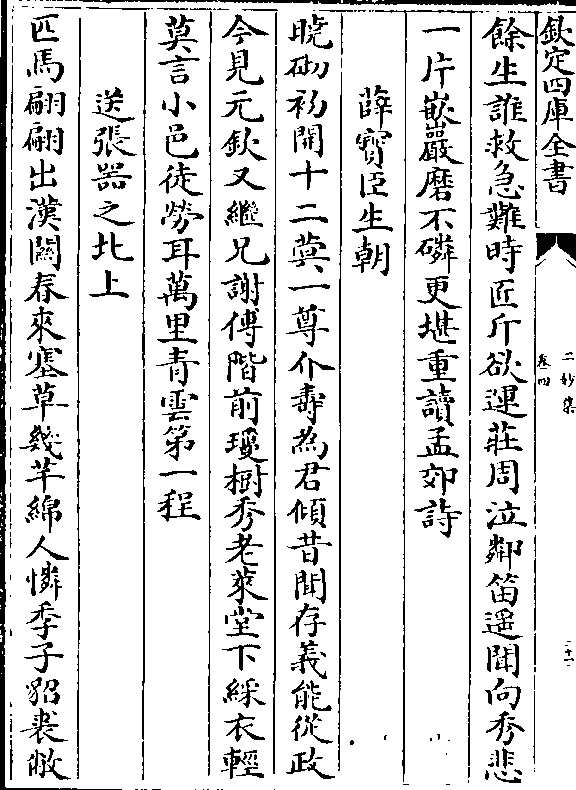 欽定四庫全書
二妙集
卷四
二十一
餘生誰救急難時匠斤欲運莊周泣鄰笛遥聞向秀悲
一片嵌巖磨不磷更堪重讀孟郊詩
薛寶臣生朝
曉砌初開十二蓂一尊介壽為君傾昔聞存義能從政
今見元欽又繼兄謝傅階前瓊樹秀老萊堂下綵衣輕
莫言小邑徒勞耳萬里青雲第一程
送張器之北上
匹馬翩翩出漢關春來塞草幾芊綿人憐季子貂裘敝